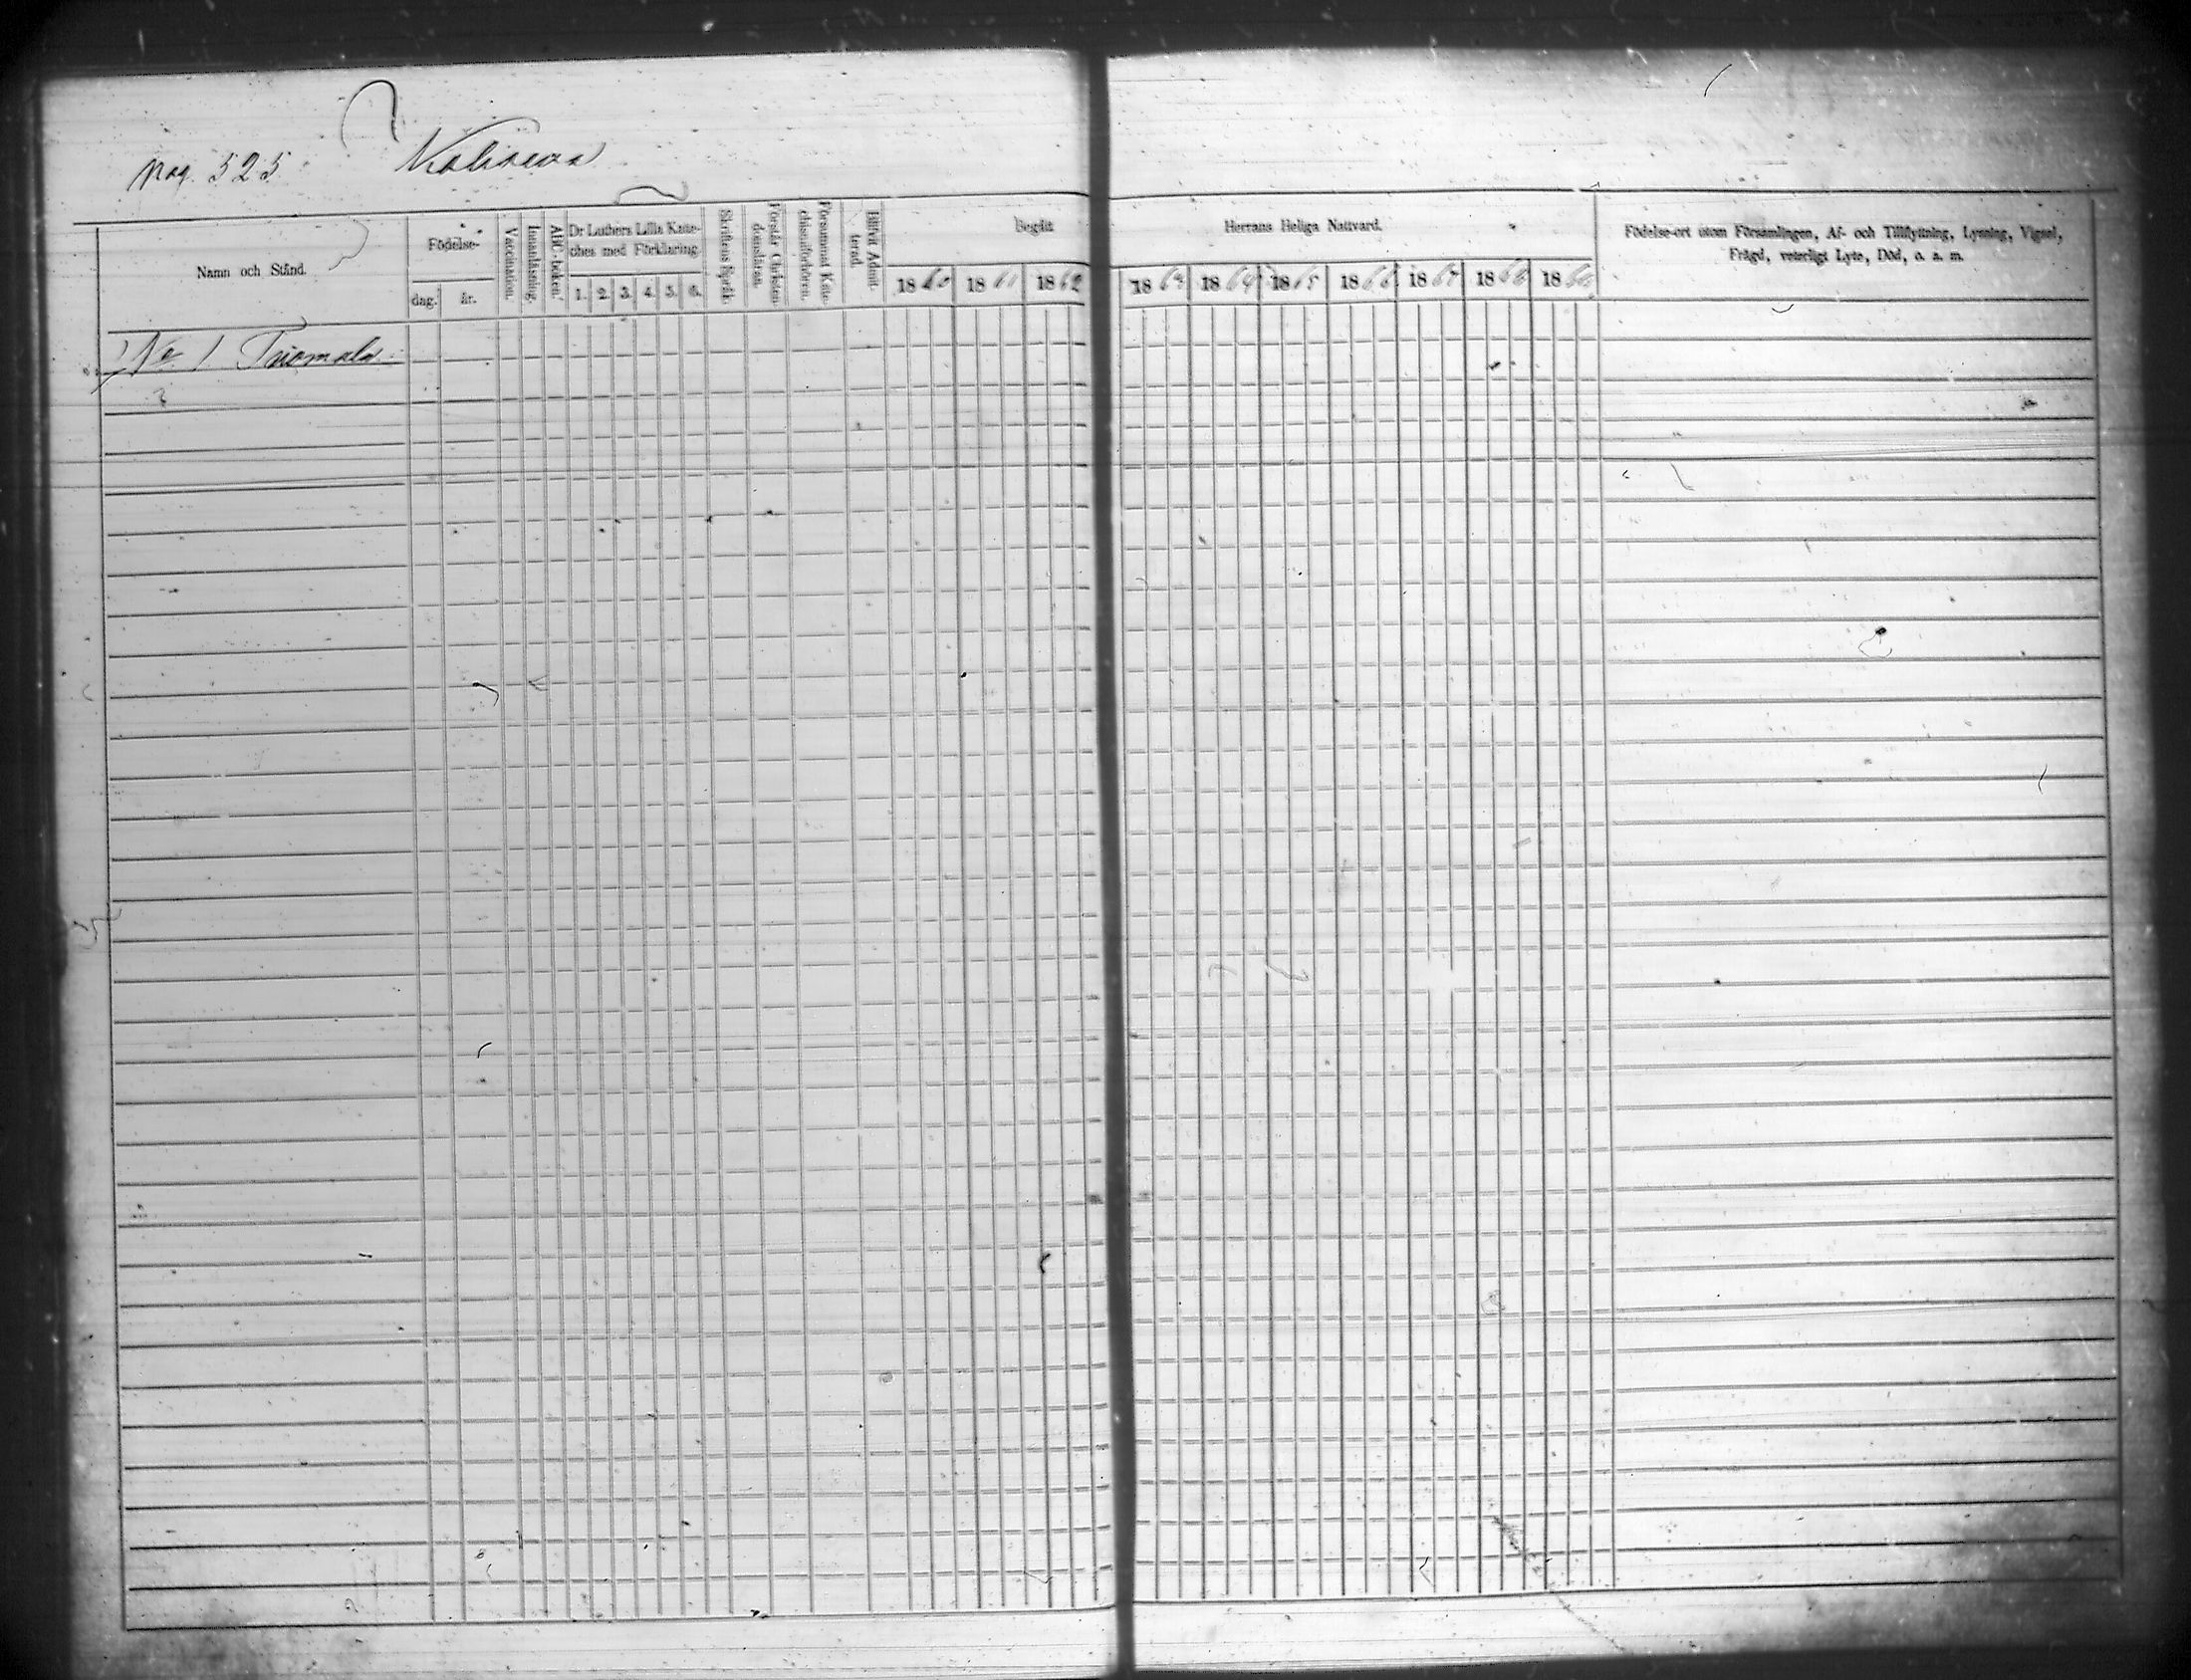 pag. 525
Namn och Stånd.
Födelse-
dag.
år.
Vaccination.
Innanläsning.
ABC-boken.
Dr Luthers Lilla Kate-
ches med Förklaring.
1. 2. 3. 4. 5. 6.
Skriftens Språk.
Förstår Christen-
domsläran.
Försummat Kate-
chismiförhören.
Blifvit Admit-
terad.
Begått
Herrans Heliga Nattvard.
1860 1861 1862 1863 1864 1865 1866 1867 1868 1869
Födelse-ort utom Församlingen, Af- och Tillflyttning, Lysning, Vigsel,
Frägd, veterligt Lyte, Död, o. a. m.
No 1